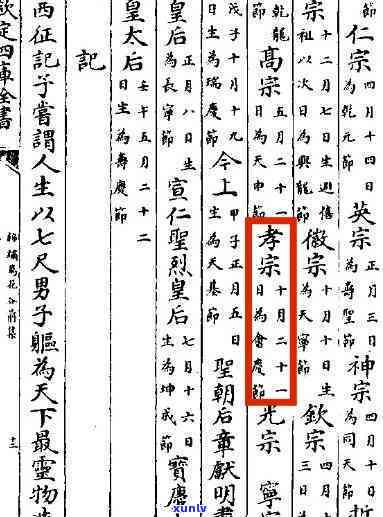 節仁宗四月十四日為乾元節英宗正月三日為壽聖節神宗四月十日為同天節哲
宗十二月七日生避僖祖以次日為興龍節徽宗十月十日生為天寧節欽宗四月十三日為
乾龍節高宗五月二十一日為天申節孝宗十月二十一日為會慶節光宗寧宗
戊子十月十九日生為瑞慶節今上甲子正月五日生為天基節聖朝后章獻明
皇后正月八日生為長寧節宣仁聖烈皇后七月十六日生為坤成節寶慶
皇太后壬午五月二十二日生為壽慶節
記
西征記予嘗謂人生以七尺男子軀為天下最靈物
欽定四庫全書